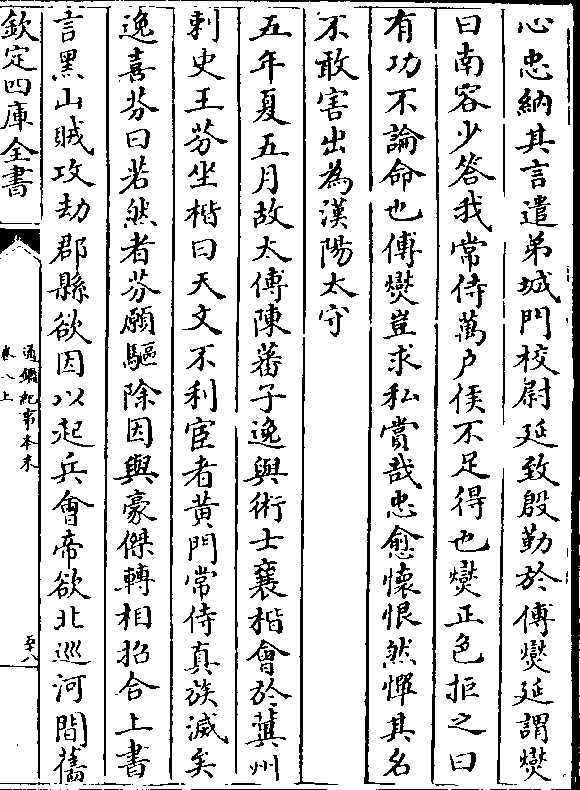 心忠納其言遣弟城門校尉延致殷勤於傅燮延謂燮
曰南容少答我常侍萬户侯不足得也燮正色拒之曰
有功不論命也傅燮豈求私賞哉忠愈懷恨然憚其名
不敢害出為漢陽太守
五年夏五月故太傅陳蕃子逸與術士襄楷會於冀州
刺史王芬坐楷曰天文不利宦者黄門常侍真族滅矣
逸喜芬曰若然者芬願驅除因與豪傑轉相招合上書
言黑山賊攻劫郡縣欲因以起兵會帝欲北巡河間舊
欽定四庫全書
通鑑紀事本末
卷八上
五十八